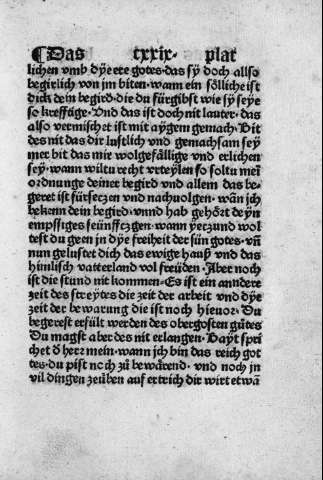 ¶Das cxxix· plat
lichen vmb dÿe ere gotes·das sÿ doch allso
begirlich von jm biten·wann ein sölliche ist
dick dein begird·die du fürgibst wie sÿ seye
so krefftige·Vnd das ist doch nit lauter·das
also vermischet ist mit aÿgem gemach·Bit
des nit das dir lustlich vnd gemachsam seÿ
mer bit das mir wolgefällige vnd erlichen
seÿ·wann wiltu recht vrteylen so soltu mei
ordnunge deiner begird vnd allem das be-
geret ist fürsetzen vnd nachuolgen·wan̄ jch
bekenn dein begird·vnnd hab gehört deÿn
empssiges seünfftzgen·wann yetzund wol
test du geen in dÿe freiheit der sün gotes·vn̄
nun gelustet dich das ewige hauß vnd das
himlisch vatterland vol freüden·Aber noch
ist die stund nit kommen·Es ist ein anndere
zeit des streytes die zeit der arbeit vnd dÿe
zeit der bewarung die ist noch hieuor·Du
begerest erfült werden des obergosten gůtes
Du magst aber des nit erlangen·Daÿt spri
chet ď herr mein·wann jch bin das reich got
tes·du pist noch zů bewärend·vnd noch jn
vil dingen zeüben auf ertrich dir wirt etwā